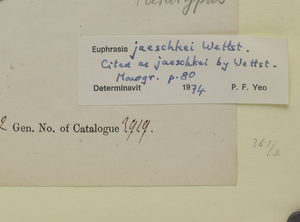 Euphrasia jaeschkei Wettst.
Cited as jaeschkei by Wettst.
Monogr. p. 80
Determinavit 1974 P. F. Yeo
2 Gen. No. of Catalogue 2929.